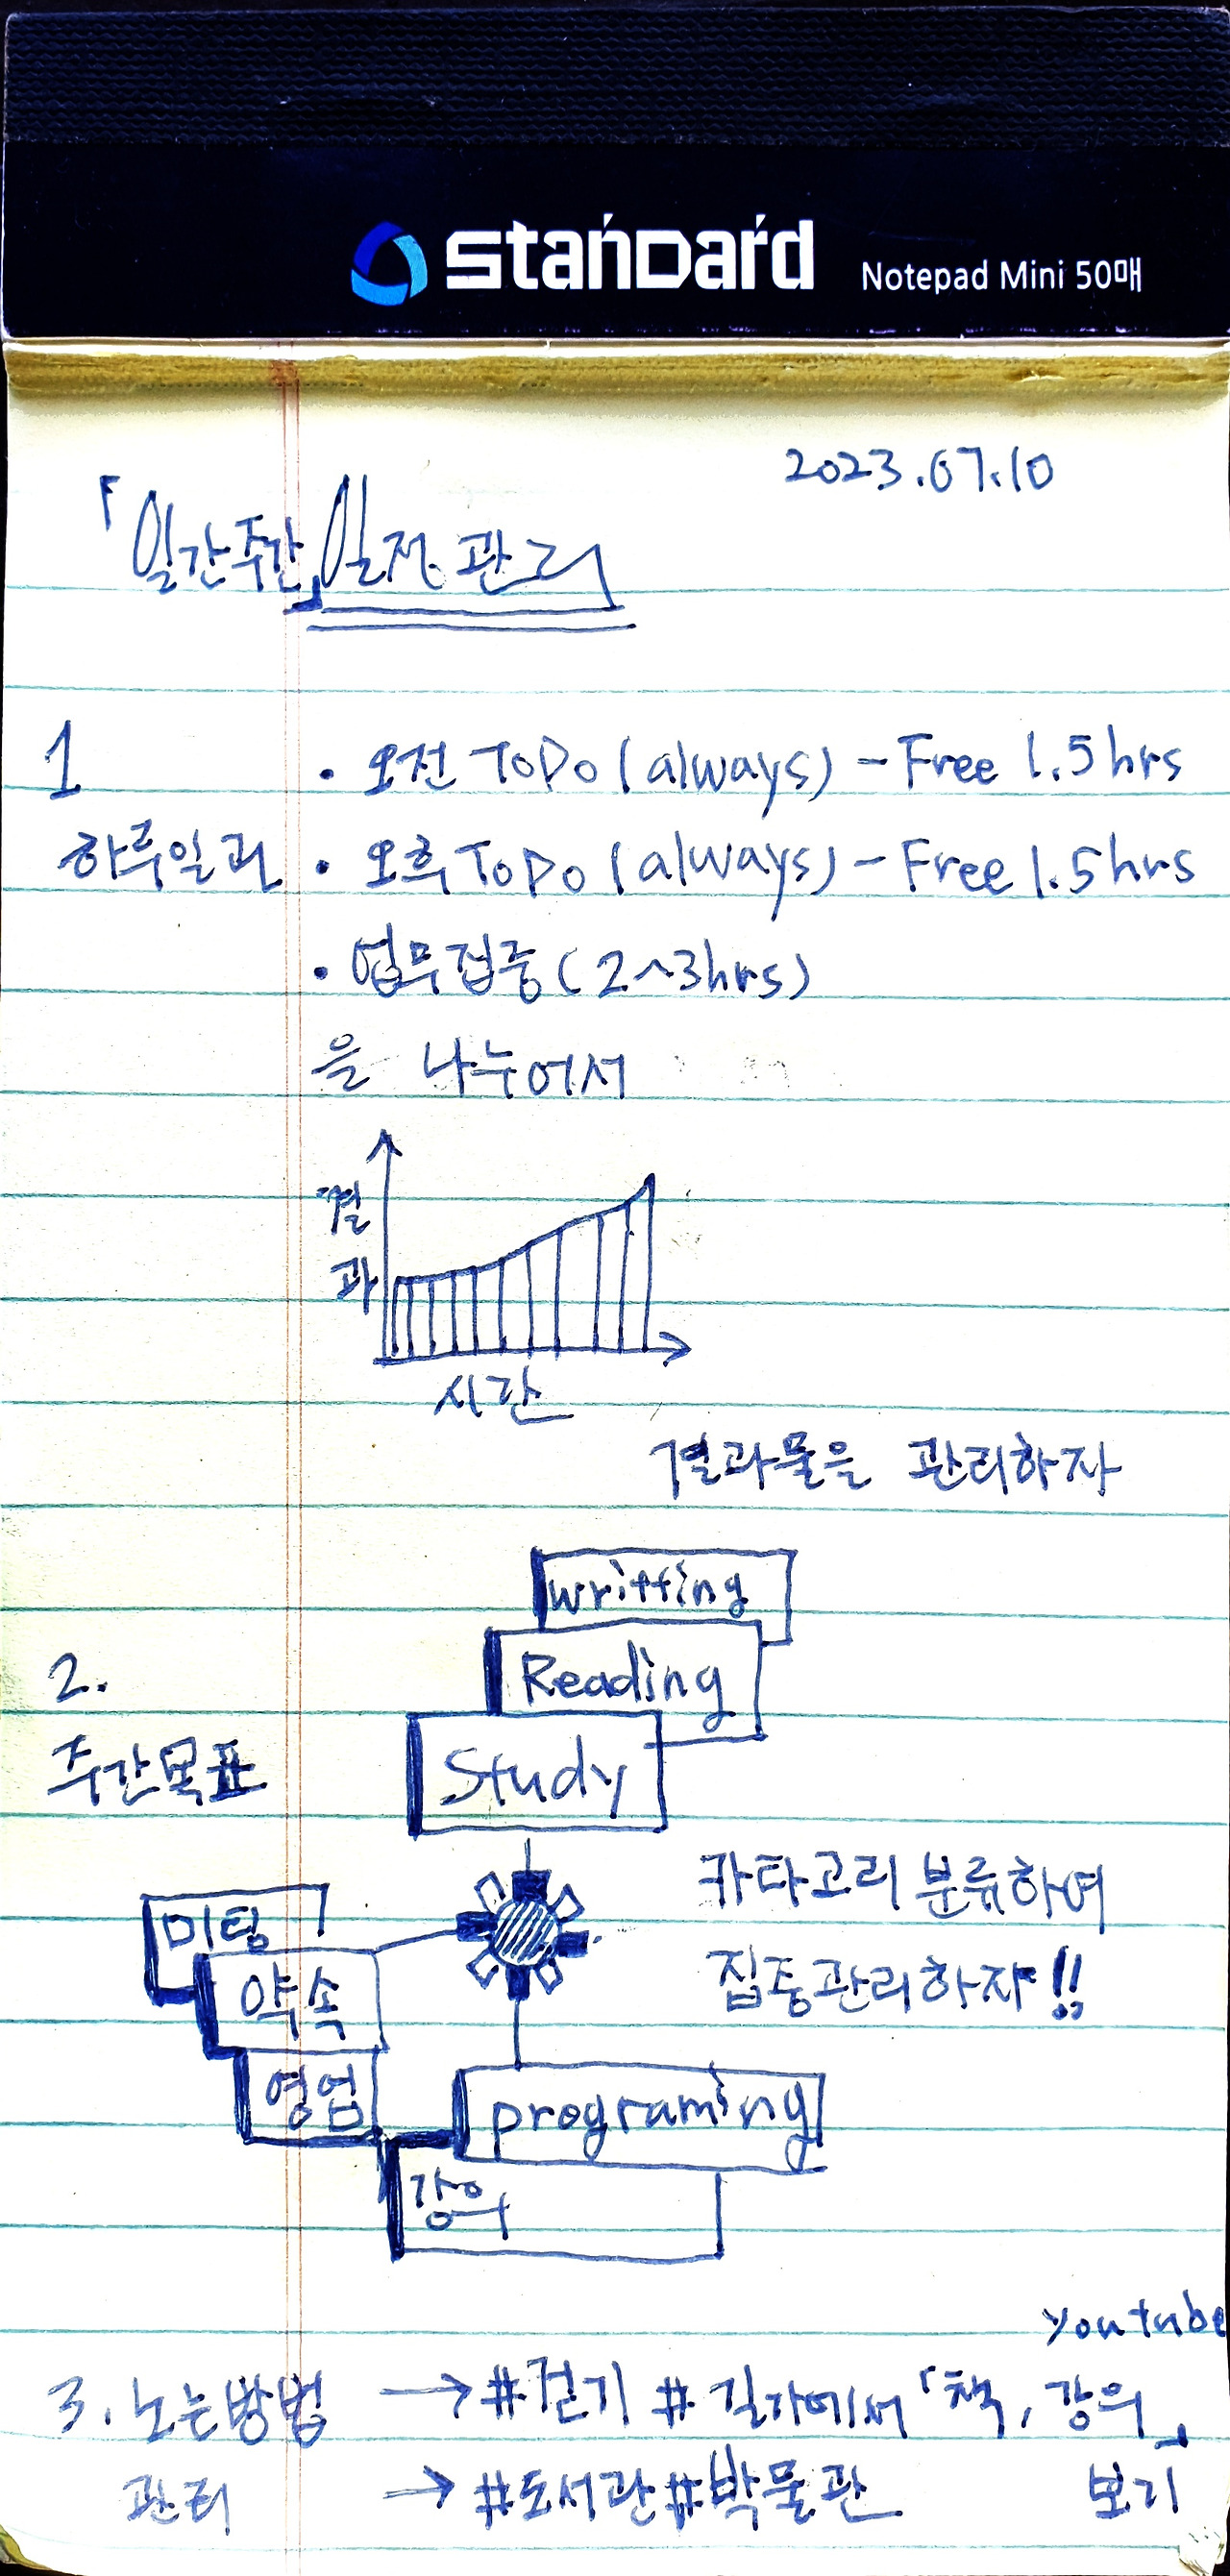 standard Notepad Mini 50매
2023.07.10
「일간주간」일정관리
1
· 오전 ToDo (always) - Free 1.5hrs
하루일과 · 오후 ToDo (always) - Free 1.5hrs
· 업무집중 (2~3hrs)
을 나누어서
결
과
시간
결과물을 관리하자
writting
2.
Reading
주간목표
Study
카타고리 분류하여
미팅
집중관리하자!!
약속
영업
programing
강의
youtube
3. 노는방법 → #걷기 # 길가에서 「책, 강의」
관리 → #도서관 #박물관 보기